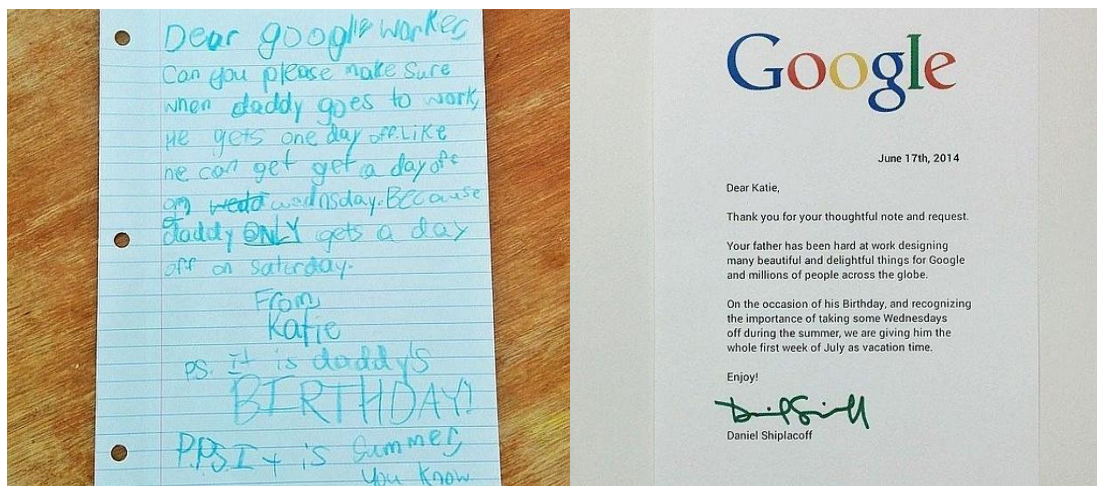 Dear google worker,
Can you please make sure
when daddy goes to work,
He gets one day off. Like
he can get get a day off
on wednsday. Because
daddy ONLY gets a day
off on saturday.
From,
Katie
P.S. It is daddy's
BIRTHDAY!
P.P.S. It is Summer,
You know
Google
June 17th, 2014
Dear Katie,
Thank you for your thoughtful note and request.
Your father has been hard at work designing
many beautiful and delightful things for Google
and millions of people across the globe.
On the occasion of his Birthday, and recognizing
the importance of taking some Wednesdays
off during the summer, we are giving him the
whole first week of July as vacation time.
Enjoy!
Daniel Shiplacoff